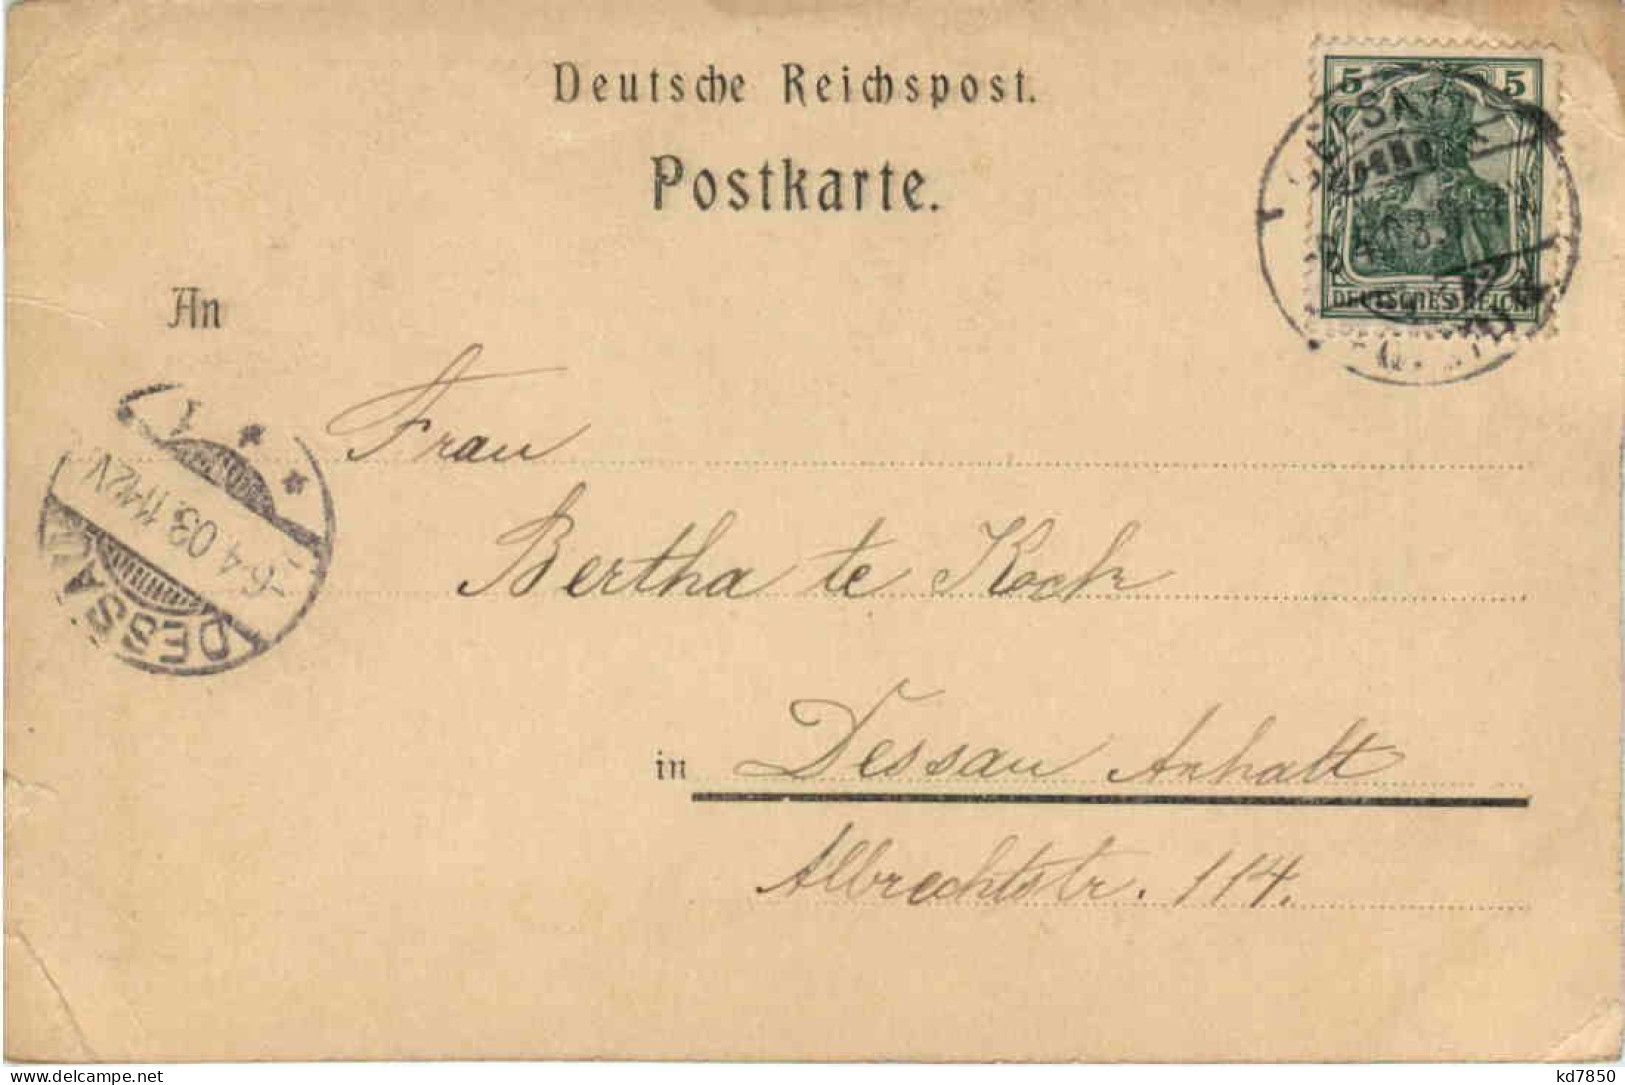 Deutsche Reichspost.
Postkarte.
5 5
DEUTSCHES REICH
An
Frau
Bertha te Kock
in Dessau Anhalt
Albrechtstr. 114.
DESSAU
-6.4.03.11-12V
*
* 1
kd7850